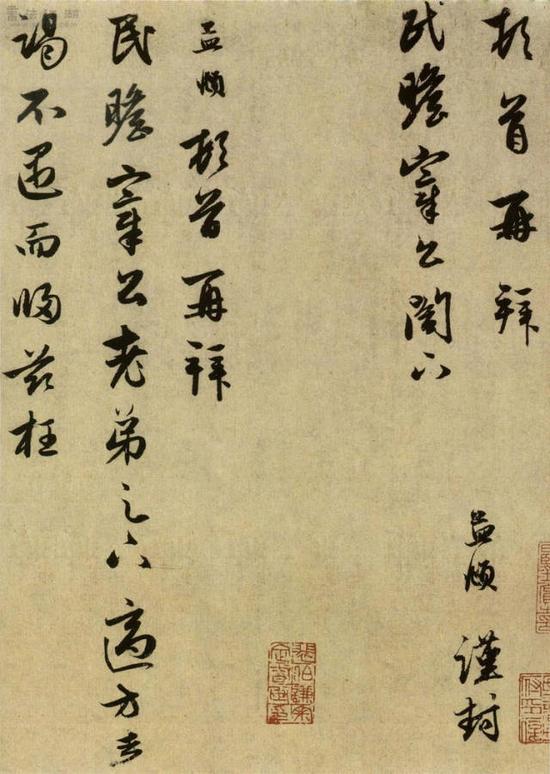 頓首再拜
孟頫 謹封
民瞻宰公閣下
孟頫頓首再拜
民瞻宰公老弟足下適方走
謁不遇而歸兹枉